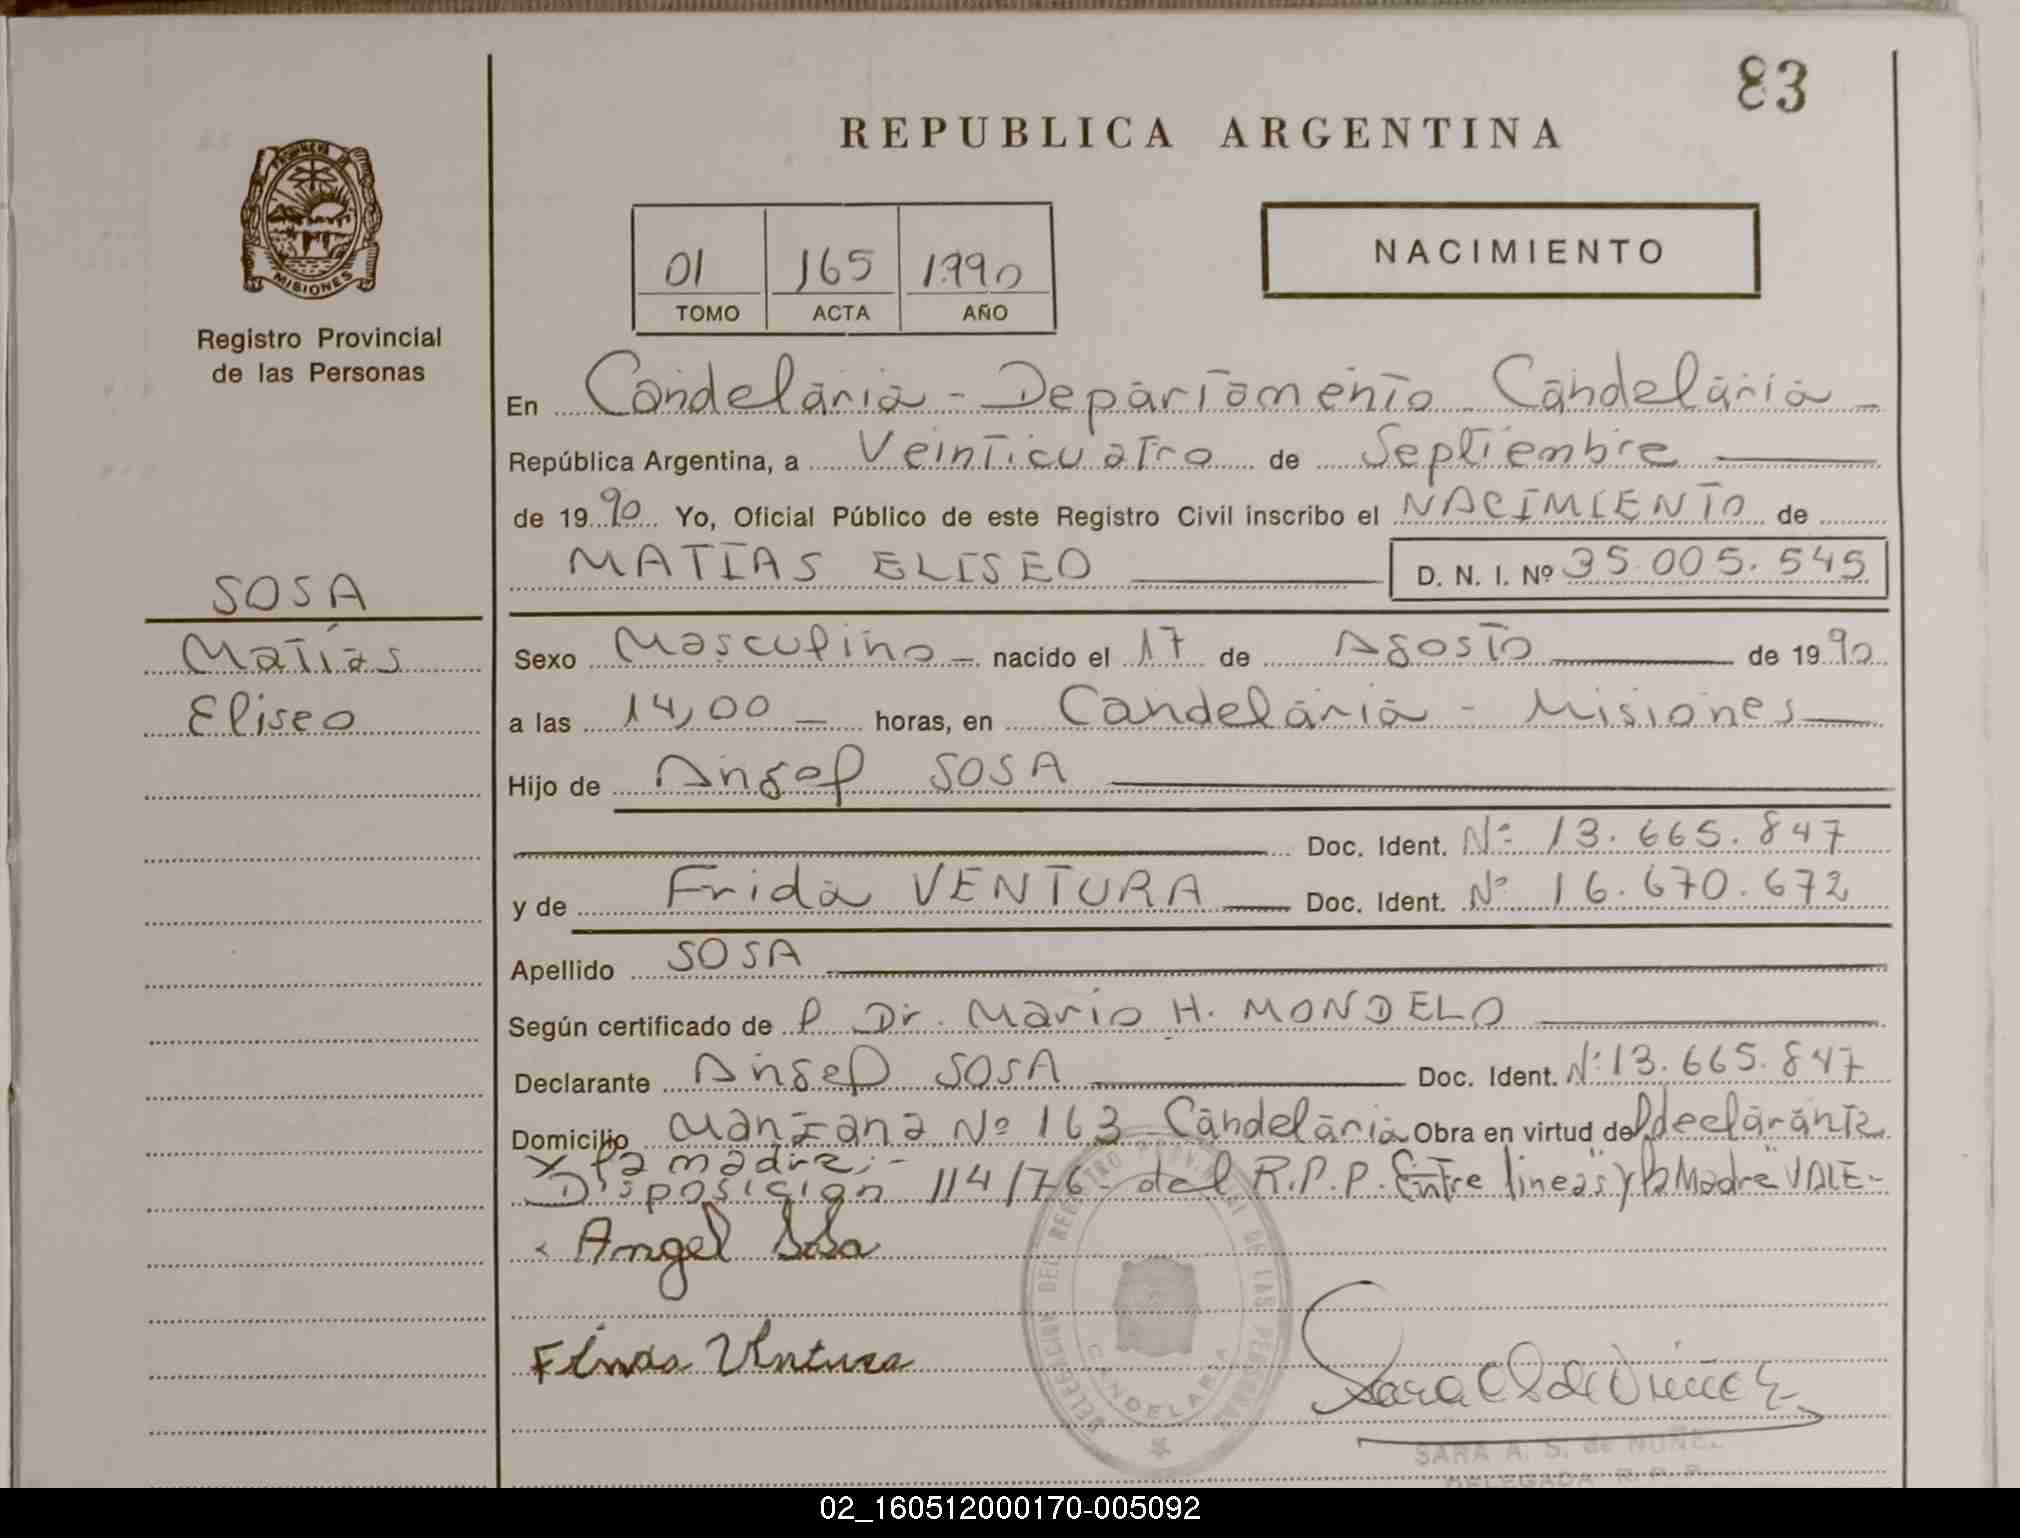 83
REPUBLICA ARGENTINA
PROVINCIA DE
MISIONES
Registro Provincial
de las Personas
01 165 1990
TOMO ACTA AÑO
NACIMIENTO
En Candelaria - Departamento Candelaria -
República Argentina, a Veinticuatro de Septiembre
de 1990 Yo, Oficial Público de este Registro Civil inscribo el NACIMIENTO de
MATIAS ELISEO D. N. I. Nº 35.005.545
SOSA
Matías
Eliseo
Sexo Masculino nacido el 17 de Agosto de 1990
a las 14,00 horas, en Candelaria - Misiones
Hijo de Angel SOSA
Doc. Ident. Nº 13.665.847
y de Frida VENTURA Doc. Ident. Nº 16.670.672
Apellido SOSA
Según certificado de l Dr. Mario H. MONDELO
Declarante Angel SOSA Doc. Ident. Nº 13.665.847
Domicilio Manzana Nº 163 Candelaria Obra en virtud del declarante
y la madre.-
Disposición 114/76 - del R.P.P. Entre lineas "y la Madre" VALE-
Angel Sosa
Ventura
DELEGACION DEL REGISTRO PROVINCIAL DE LAS PERSONAS
CANDELARIA
SARA A. S. de NUÑEZ
DELEGADA R. P. P.
02_160512000170-005092